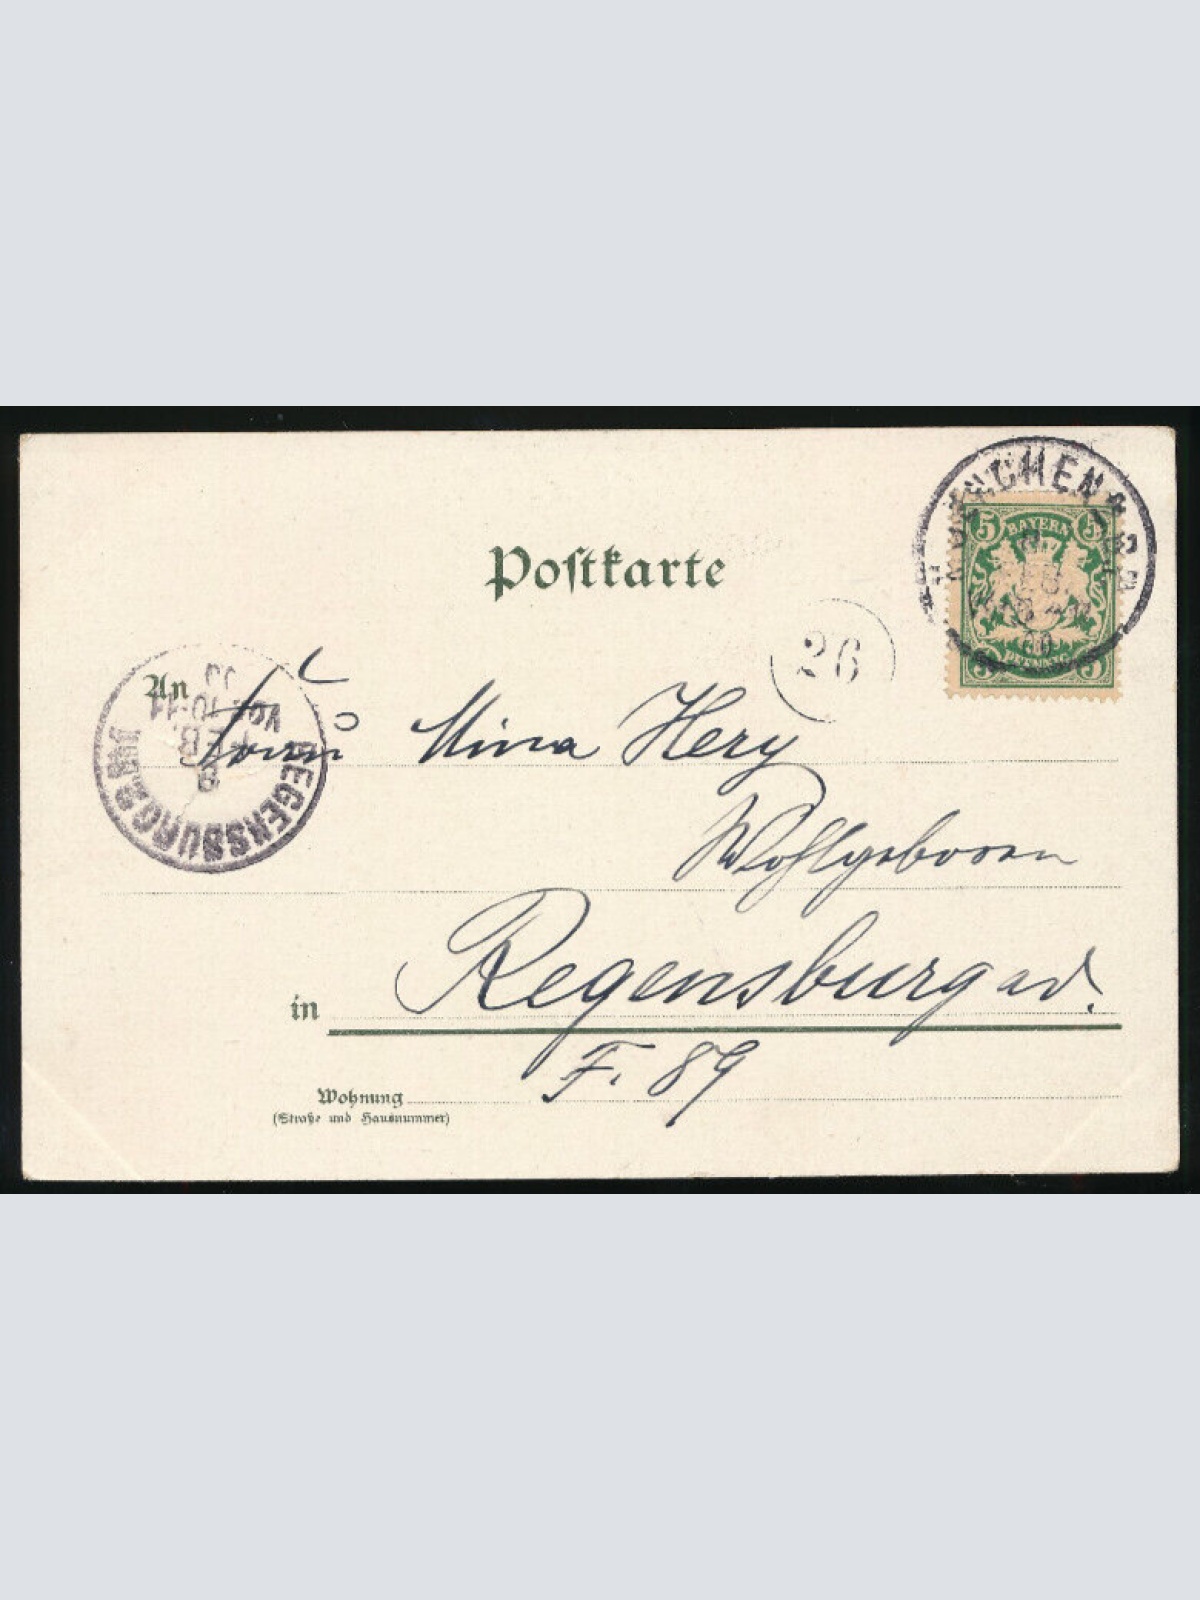 MÜNCHEN
5 BAYERN 5
FEB.
00
5 PFENNIG 5
Postkarte
26
An
REGENSBURG 2
FEB.
10-11
Frau Mina Hery
Wohlgeboren
in Regensburg a/d.
F. 89
Wohnung
(Straße und Hausnummer)